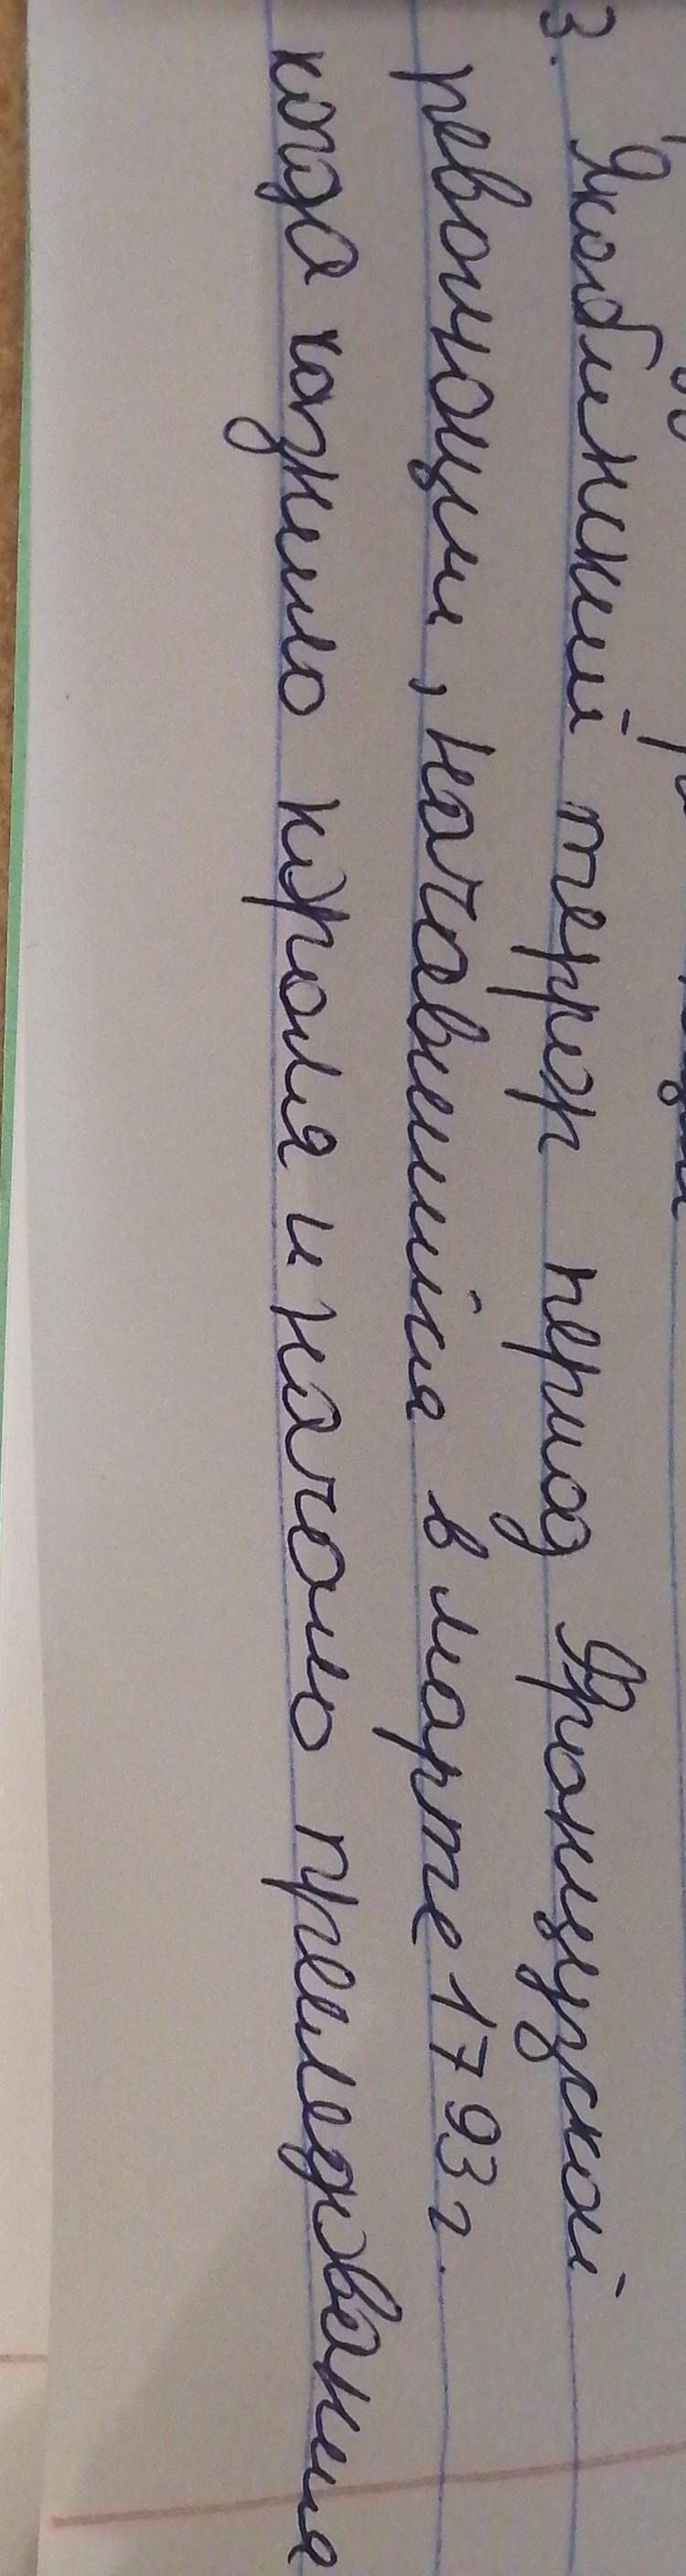 3. Якобинский террор период Французской
революции, начавшийся в марте 1793 г.
когда казнило короля и начало преследования